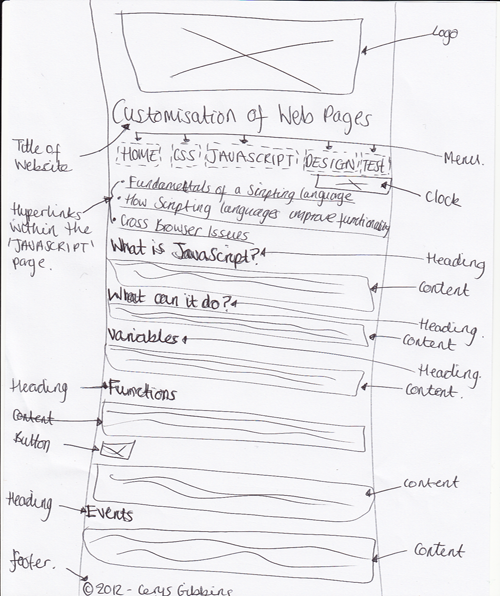 Logo
Customisation of Web Pages
Title of
Website
HOME CSS JAVASCRIPT DESIGN TEST
Menu.
Clock
Hyperlinks
within the
'JAVASCRIPT'
page.
• Fundamentals of a Scripting language
• How Scripting languages improve functionality
• Cross Browser Issues
What is JavaScript?
Heading
content
What can it do?
Heading.
Content
Variables
Heading.
content.
Heading
Functions
content
Button
content
Heading
Events
content
footer.
© 2012 - Cerys Gibbins